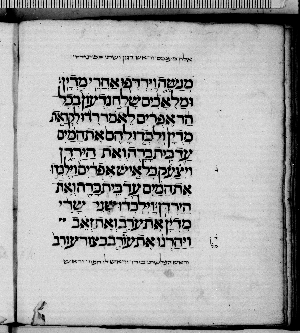 מנשה וירדפו אחרי מדין׃
ומלאכים שלח גדעון בכל
הר אפרים לאמר רדו לקראת
מדין ולכדו להם את המים
עד בית ברה ואת הירדן
ויצעק כל איש אפרים וילכדו
את המים עד בית ברה ואת
הירדן׃ וילכדו שני שרי
מדין את ערב ואת זאב
ויהרגו את עורב בצור עורב